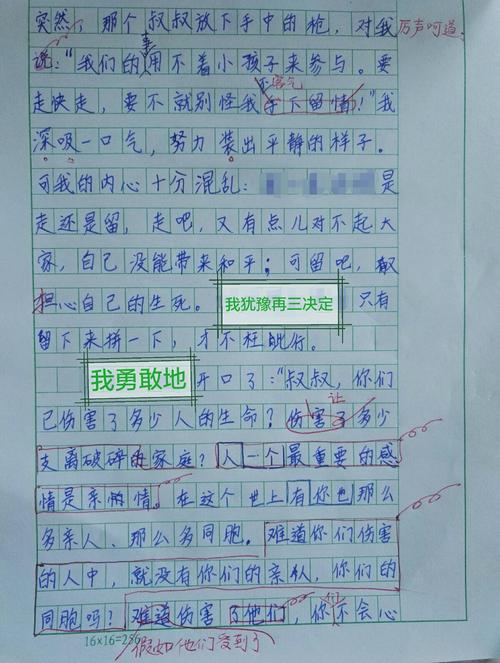 突然，那个叔叔放下手中的枪，对我厉声呵道
说："我们的事用不着小孩子来参与。要
不客气
走快走，要不就别怪我手下留情！"我
深吸一口气，努力装出平静的样子。
可我的内心十分混乱：是
走还是留，走吧，又有点儿对不起大
家，自己没能带来和平；可留吧，却
担心自己的生死。我犹豫再三决定只有
留下来拼一下，才不枉此行。
我勇敢地开口了："叔叔，你们
让
已伤害了多少人的生命？伤害了多少
支离破碎的家庭？人一个最重要的感
情是亲情。在这个世上有你也那么
多亲人、那么多同胞。难道你们伤害
的人中，就没有你们的亲人，你们的
同胞吗？难道伤害了他们，你不会心
16×16=256
假如他们受到了